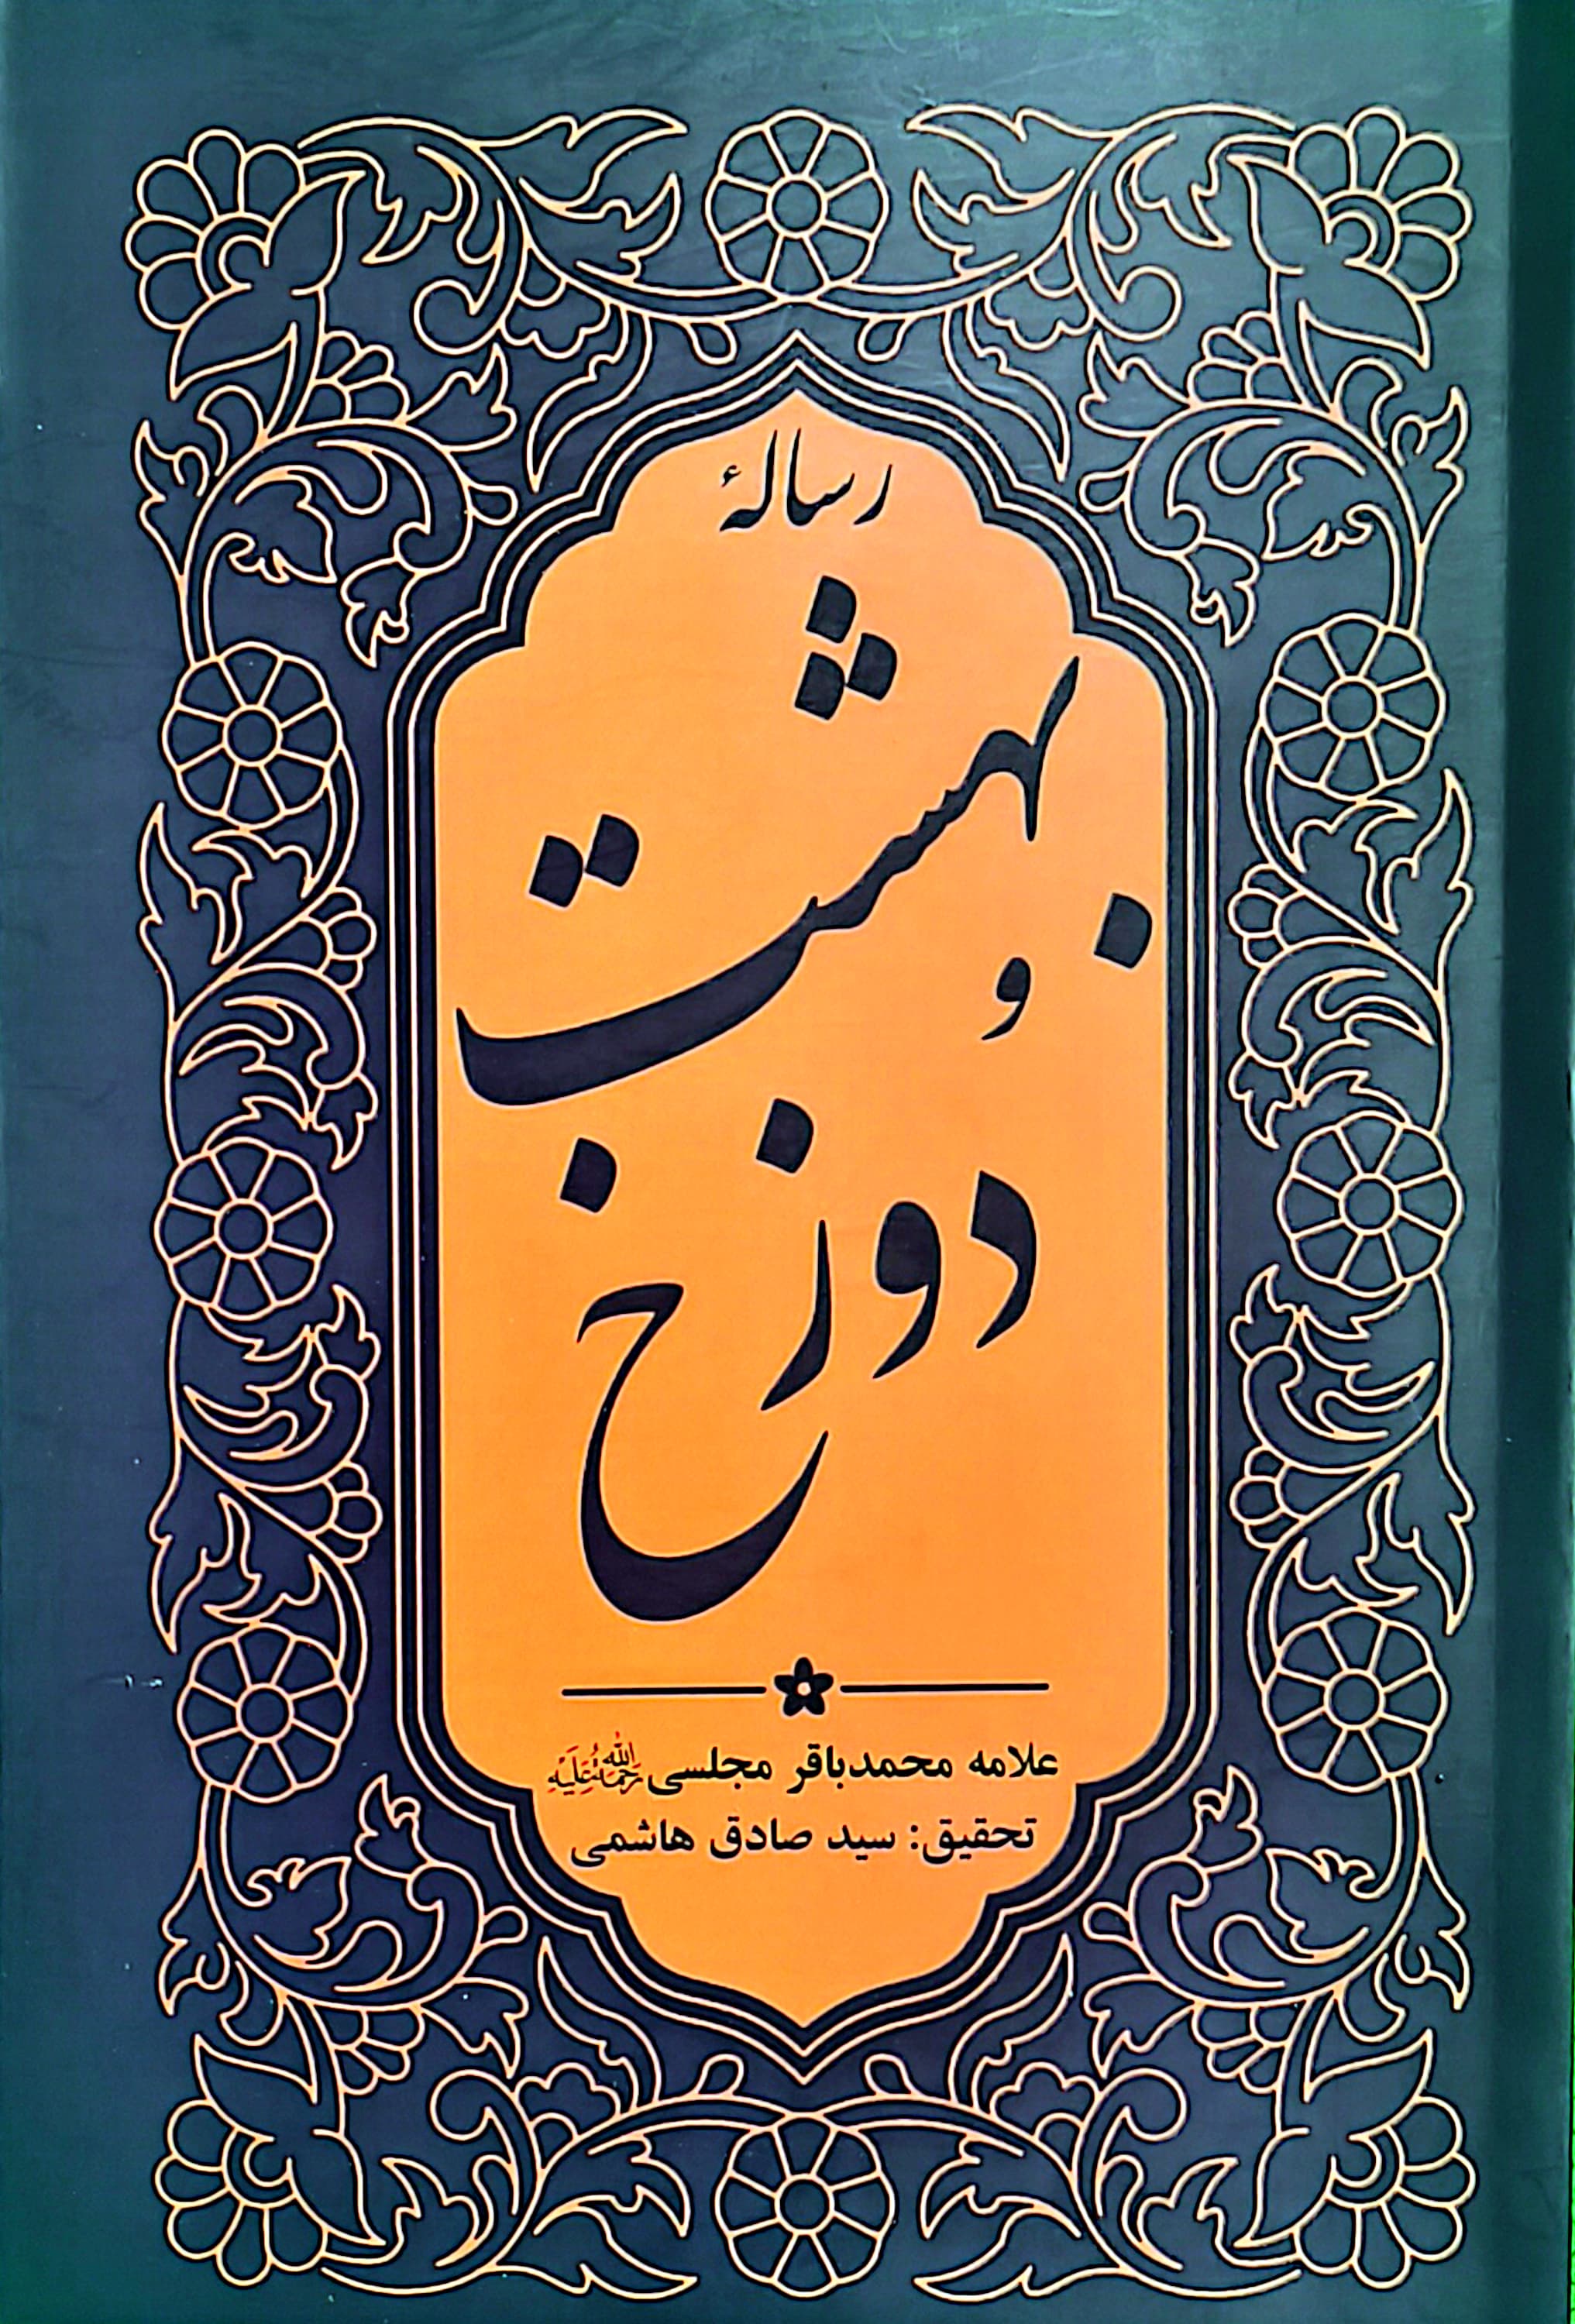 رسالهٔ
بهشت
و
دوزخ
علامه محمدباقر مجلسی رحمة الله علیه
تحقیق: سید صادق هاشمی